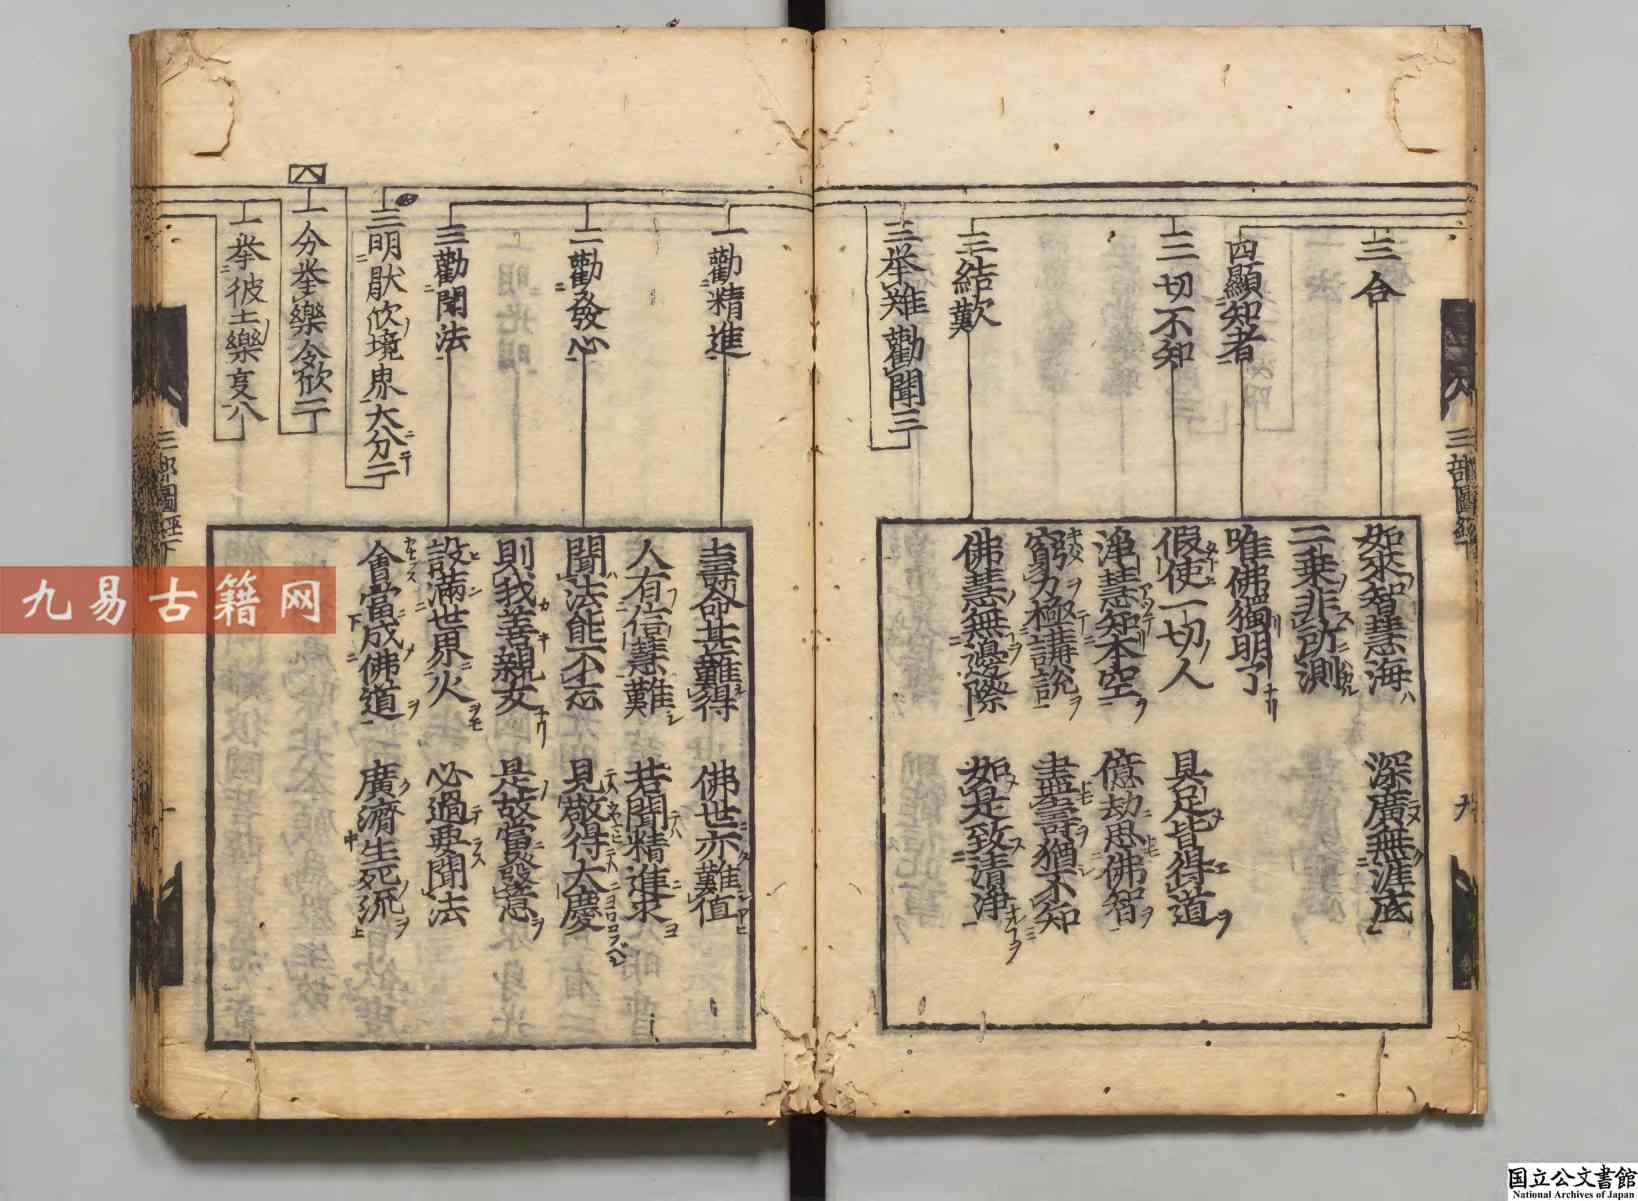 三合
四顯知者
二一切不知
三結歎
三挙難勸聞三
如來智慧海 深廣無涯底
二乗非所測
唯佛獨明了
假使一切人 具足皆得道
淨慧知本空 億劫思佛智
窮力極講説 盡壽猶不知
佛慧無邊際 如是致清淨
三部圖經
九
一勸精進
二勸發心
三勸聞法
三明厭欣境界大分二
八
一分挙樂令欣二
一挙彼土樂更八
壽命甚難得 佛世亦難值
人有信慧難 若聞精進求
聞法能不忘 見敬得大慶
則我善親友 是故當發意
設滿世界火 必過要聞法
會當成佛道 廣濟生死流
三部圖經下
九易古籍网
国立公文書館
National Archives of Japan